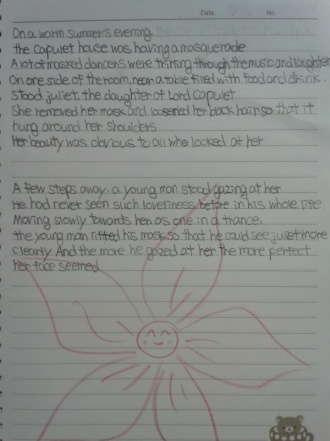 Date. No.
On a warm summer's evening.
the Capulet house was having a masquerade
A lot of masked dancers were through the music and laughter
On one side of the room, near a table filled with food and drink.
stood juliet, the daughter of Lord Capulet
She removed her mask and loosened her black hair so that it
hung around her shoulders
Her beauty was obvious to all who looked at her
A few steps away. a young man stood gazing at her
He had never seen such loveliness before in his whole life
Moving slowly towards her as one in a trance.
the young man lifted his mask so that he could see juliet more
clearly And the more he gazed at her the more perfect
her face seemed